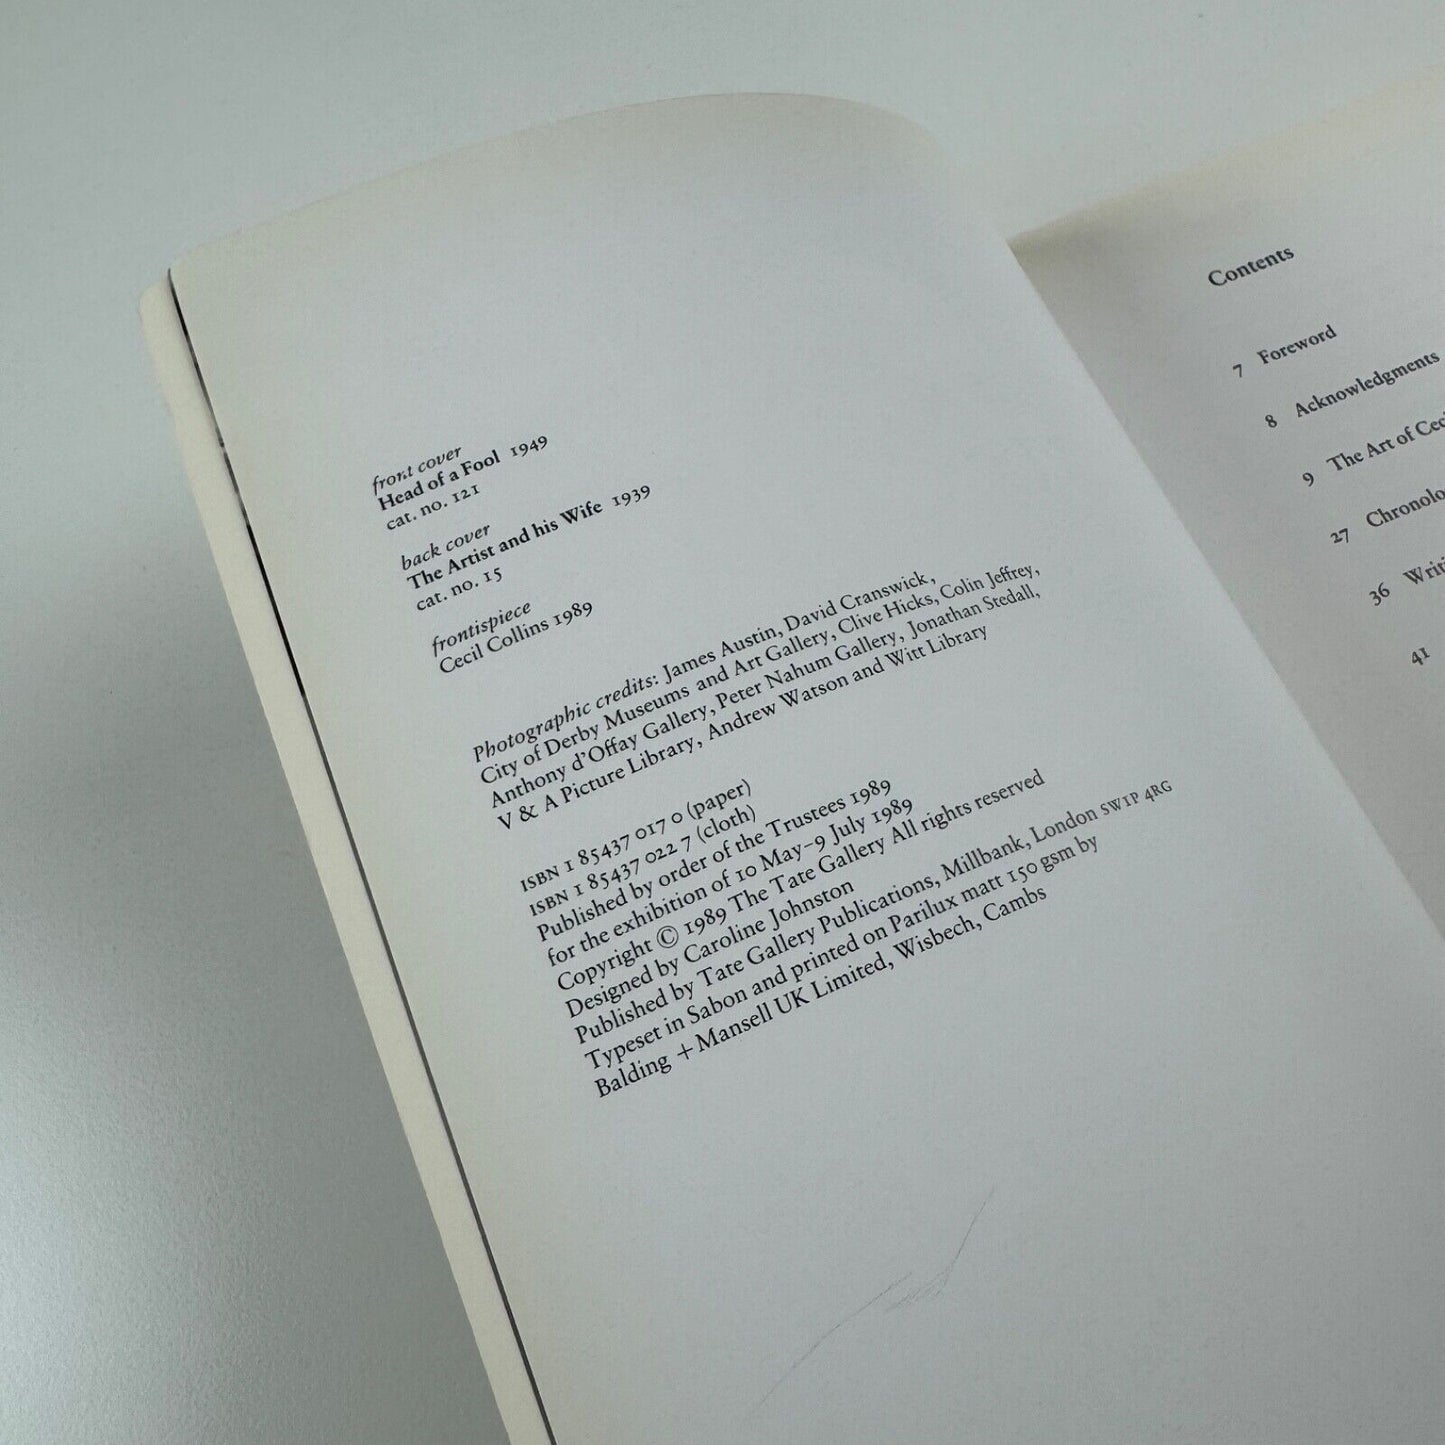 front cover
Head of a Fool 1949
cat. no. 121
back cover
The Artist and his Wife 1939
cat. no. 15
frontispiece
Cecil Collins 1989
Photographic credits: James Austin, David Cranswick,
City of Derby Museums and Art Gallery, Clive Hicks, Colin Jeffrey,
Anthony d'Offay Gallery, Peter Nahum Gallery, Jonathan Stedall,
V & A Picture Library, Andrew Watson and Witt Library
ISBN 1 85437 017 0 (paper)
ISBN 1 85437 022 7 (cloth)
Published by order of the Trustees 1989
for the exhibition of 10 May–9 July 1989
Copyright © 1989 The Tate Gallery All rights reserved
Designed by Caroline Johnston
Published by Tate Gallery Publications, Millbank, London SW1P 4RG
Typeset in Sabon and printed on Parilux matt 150 gsm by
Balding + Mansell UK Limited, Wisbech, Cambs
Contents
7 Foreword
8 Acknowledgments
9 The Art of
27
36
41